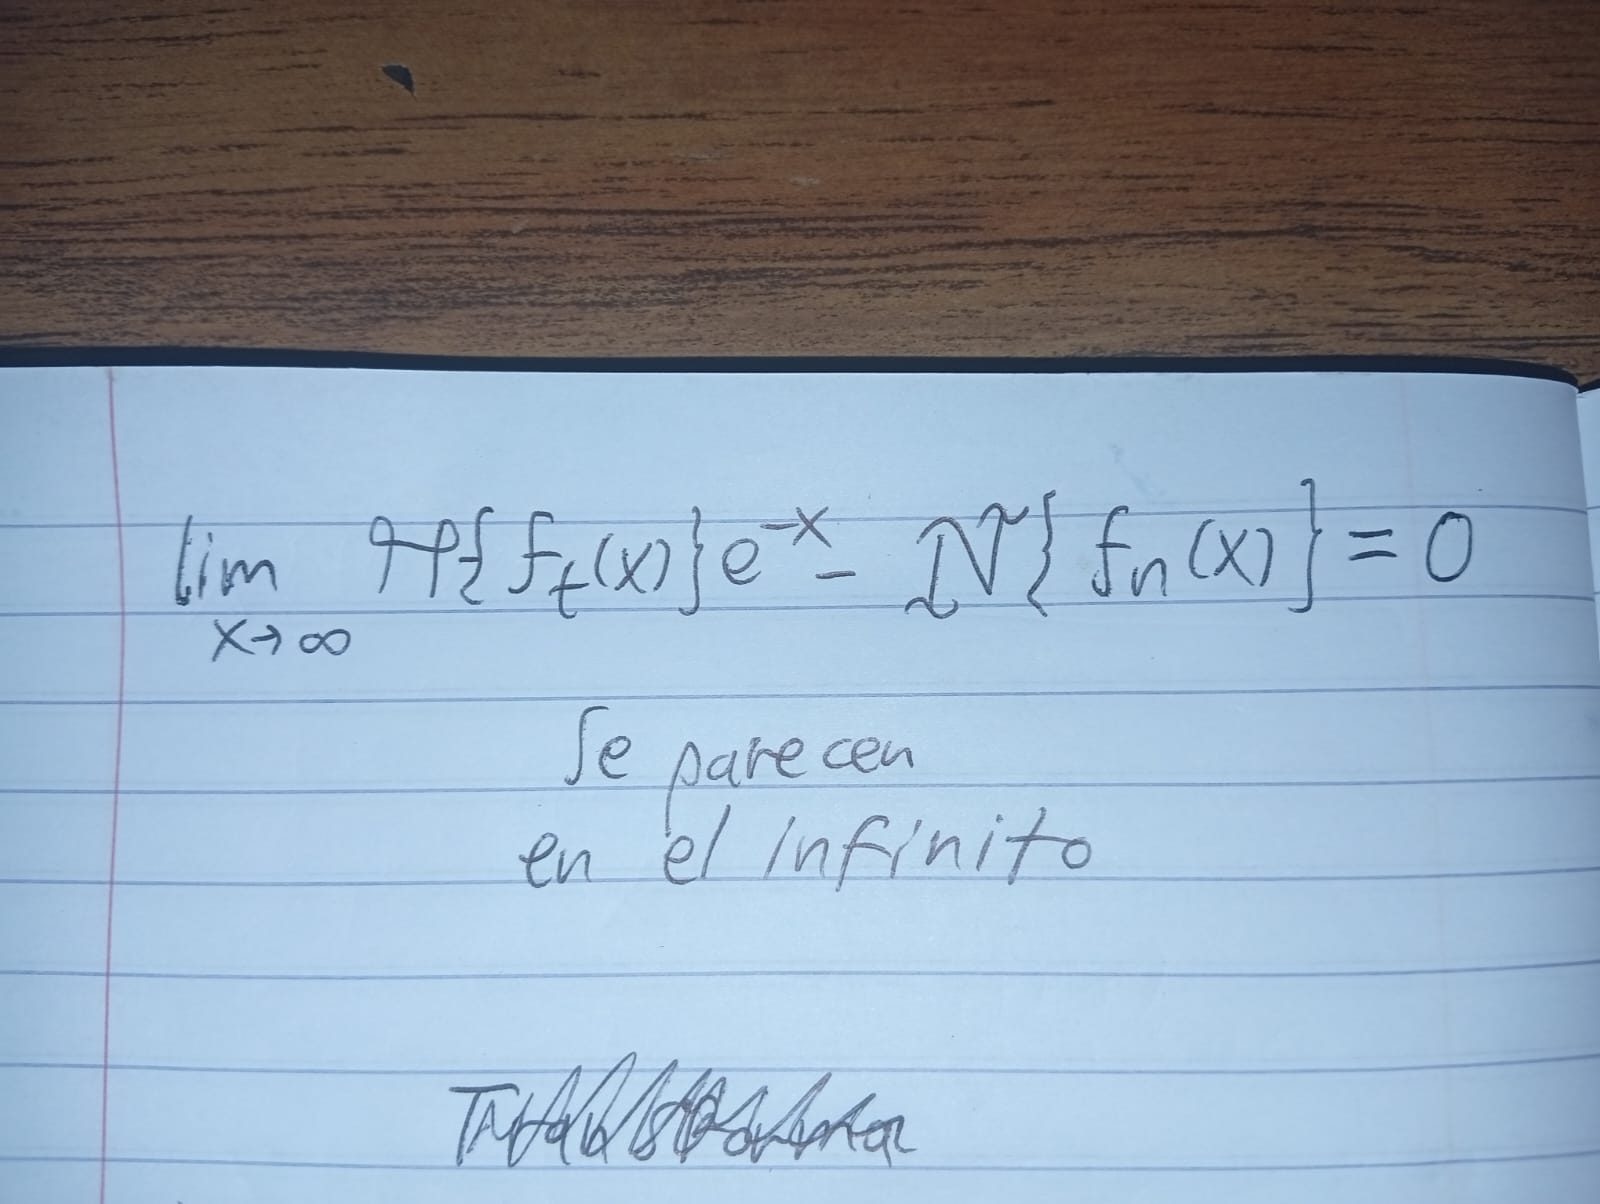 lim ℋ{f_t(x)}e^-x - 𝒩{f_n(x)} = 0
x→∞
Se parecen
en el infinito